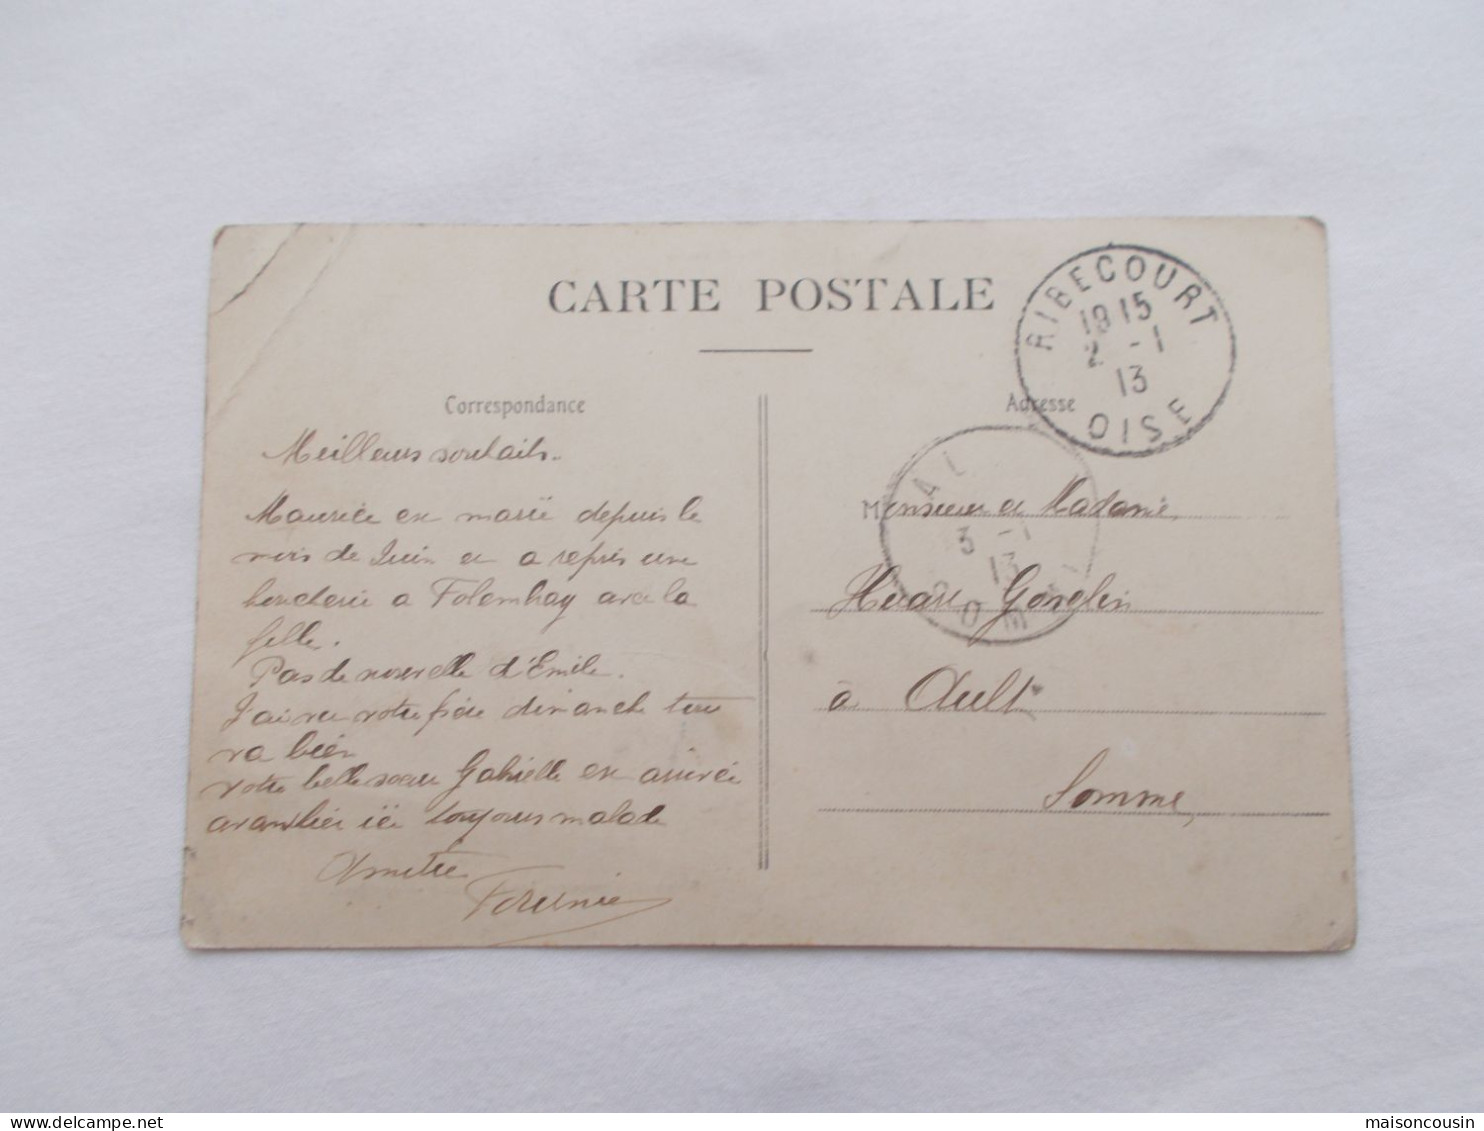 CARTE POSTALE
RIBECOURT
18 15
2 - 1
13
OISE
Correspondance
Adresse
Meilleurs souhaits.
Maurice en marië depuis le
mois de Juin en a repris une
boucherie a Folembray avec la
fille.
Pas de nouvelle d'Emile.
J'ai vu votre frère dimanche tou
va bien
votre belle soeur Gabrielle en arrivée
avanthier ici toujours malade
Monsieur et Madame
3 - 1
13
Huart Gosselin
à Ault
Somme
maisoncousin